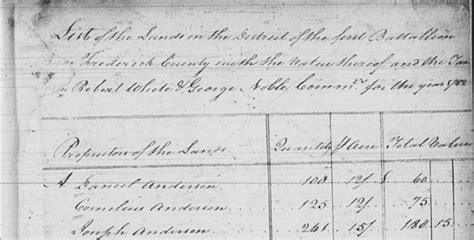 List of the Lands in the District of the first Battallion
in Frederick County with the Value thereof and the Tax
by Robert White & George Noble Commrs. for the year 1782
Proprietors of the Lands Quantity P Acre Total Value
A Daniel Anderson 100 12/ £ 60
Cornelius Anderson 125 12/ 75
Joseph Anderson 241 15/ 180.15